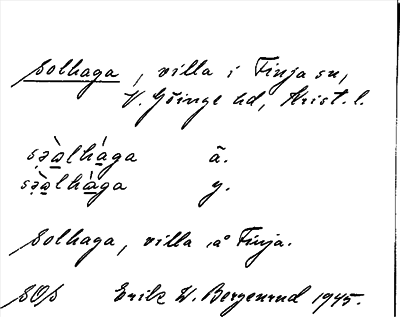 Solhaga, villa i Finja sn,
V. Göinge hd, Krist. l.
sə̣̀a̲lhà̲ga ã.
sə̣̀a̲lhà̲ga y.
Solhaga, villa å Finja.
SOS Erik W. Bergenrud 1945.